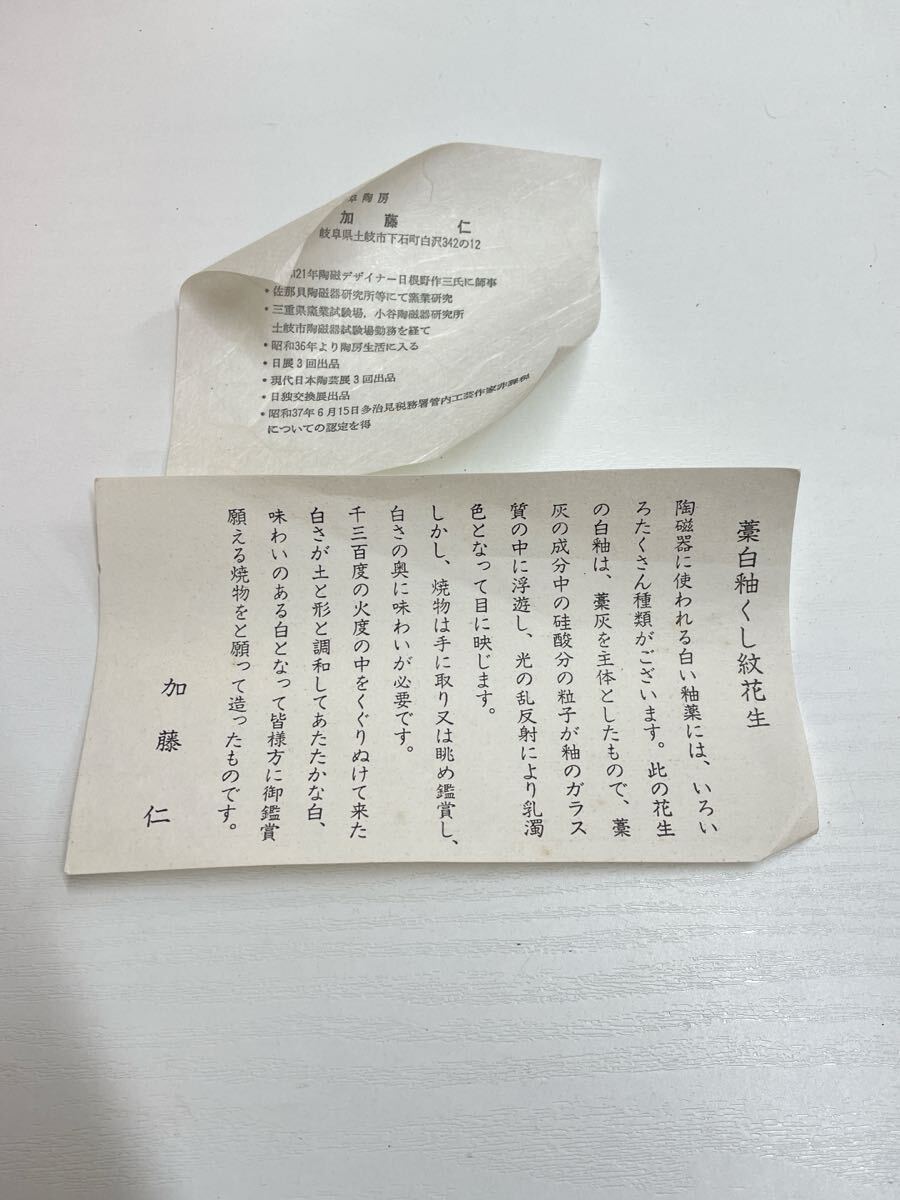 阜陶房
加藤 仁
岐阜県土岐市下石町白沢342の12
21年陶磁デザイナー日根野作三氏に師事
・佐那貝陶磁器研究所等にて窯業研究
・三重県窯業試験場，小谷陶磁器研究所
土岐市陶磁器試験場勤務を経て
・昭和36年より陶房生活に入る
・日展3回出品
・現代日本陶芸展3回出品
・日独交換展出品
・昭和37年6月15日多治見税務署管内工芸作家非課税
についての認定を得
藁白釉くし紋花生
陶磁器に使われる白い釉薬には、いろい
ろたくさん種類がございます。此の花生
の白釉は、藁灰を主体としたもので、藁
灰の成分中の硅酸分の粒子が釉のガラス
質の中に浮遊し、光の乱反射により乳濁
色となって目に映じます。
しかし、焼物は手に取り又は眺め鑑賞し、
白さの奥に味わいが必要です。
千三百度の火度の中をくぐりぬけて来た
白さが土と形と調和してあたたかな白、
味わいのある白となって皆様方に御鑑賞
願える焼物をと願って造ったものです。
加藤 仁